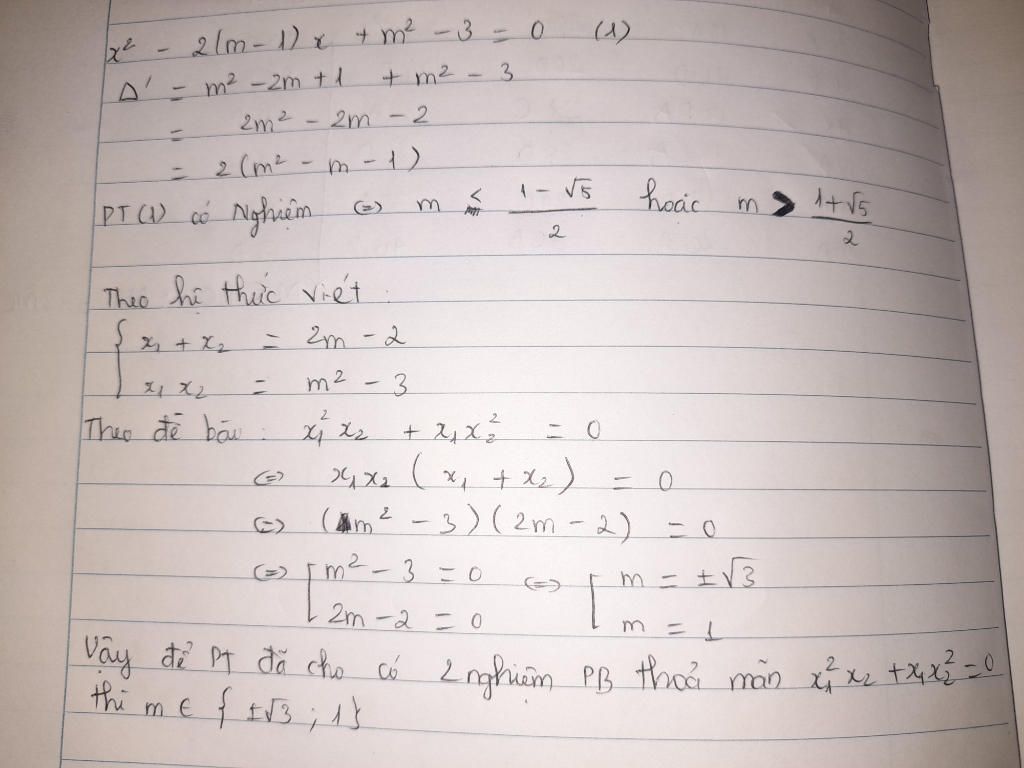 x² - 2(m-1)x + m² - 3 = 0 (1)
Δ' = m² - 2m + 1 + m² - 3
= 2m² - 2m - 2
= 2(m² - m - 1)
PT(1) có Nghiệm <=> m < (1-√5)/2 hoặc m > (1+√5)/2
Theo hệ thức viét :
{ x₁ + x₂ = 2m - 2
x₁ x₂ = m² - 3
Theo đề bài : x₁² x₂ + x₁ x₂² = 0
<=> x₁ x₂ ( x₁ + x₂ ) = 0
<=> (m² - 3)(2m - 2) = 0
<=> [ m² - 3 = 0 <=> [ m = ±√3
2m - 2 = 0 m = 1
Vậy để PT đã cho có 2 nghiệm PB thoả mãn x₁² x₂ + x₁ x₂² = 0
thì m ∈ { ±√3 ; 1 }